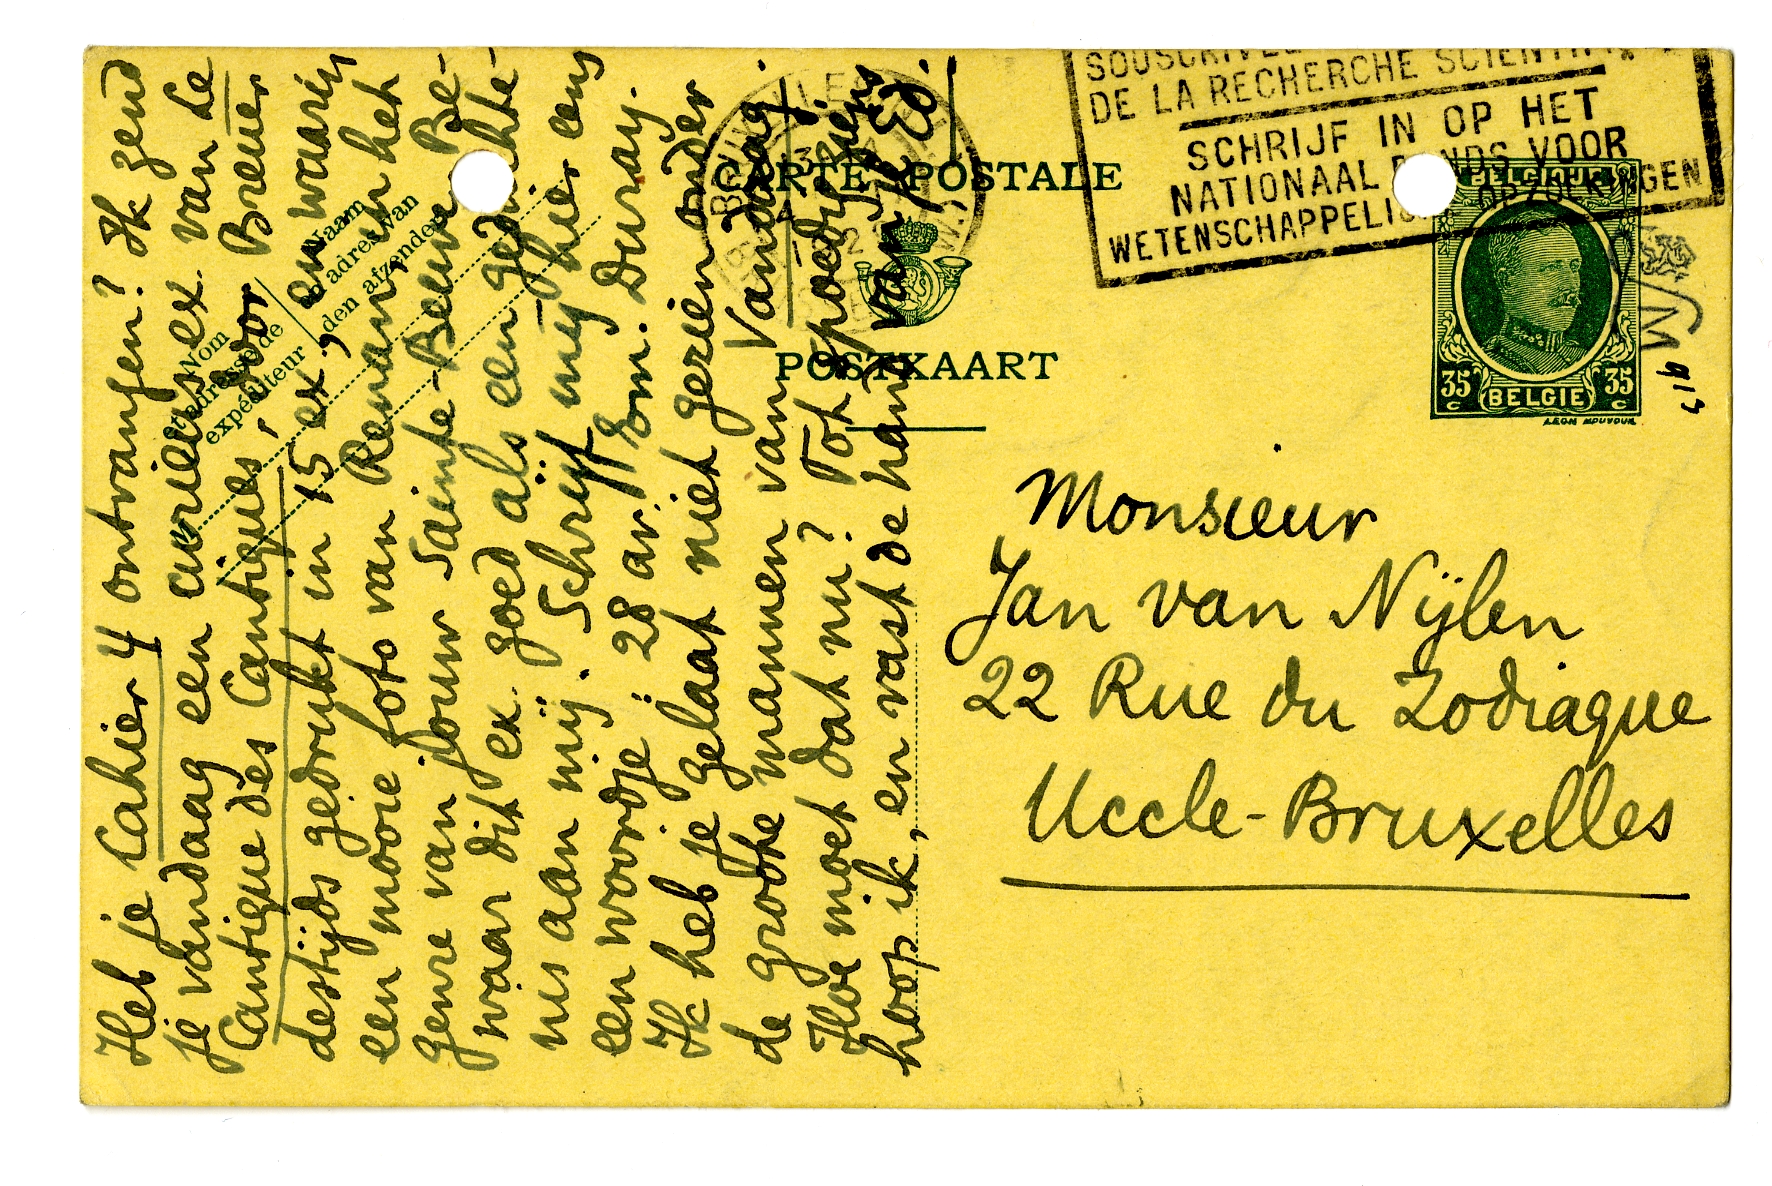 Heb je Cahier 4 ontvangen? Ik zend
je vandaag een curieus ex. van de
Cantique des Cantiques, door Breuer
destijds gedrukt in 15 ex., en waarin
een mooie foto van Renan, in het
genre van jouw Sainte-Beuve. Be-
waar dit ex. goed als een gedachte-
nis aan mij. Schrijf mij hier eens
een woordje: 28 av. Em. Duray.
Ik heb je gelaat niet gezien onder
de groote mannen van Vandaag.
Hoe moet dat nu? Tot spoedig ziens
hoop ik, en vast de hand van je Ed.
Nom et adresse de expéditeur
Naam en adres van den afzender
CARTE POSTALE
POSTKAART
DE LA RECHERCHE SCIENTIFI
SCHRIJF IN OP HET
NATIONAAL FONDS VOOR
WETENSCHAPPELIJKE OPZOEKINGEN
BELGIQUE
35 c BELGIE 35 c
Monsieur
Jan van Nijlen
22 Rue du Zodiaque
Uccle-Bruxelles